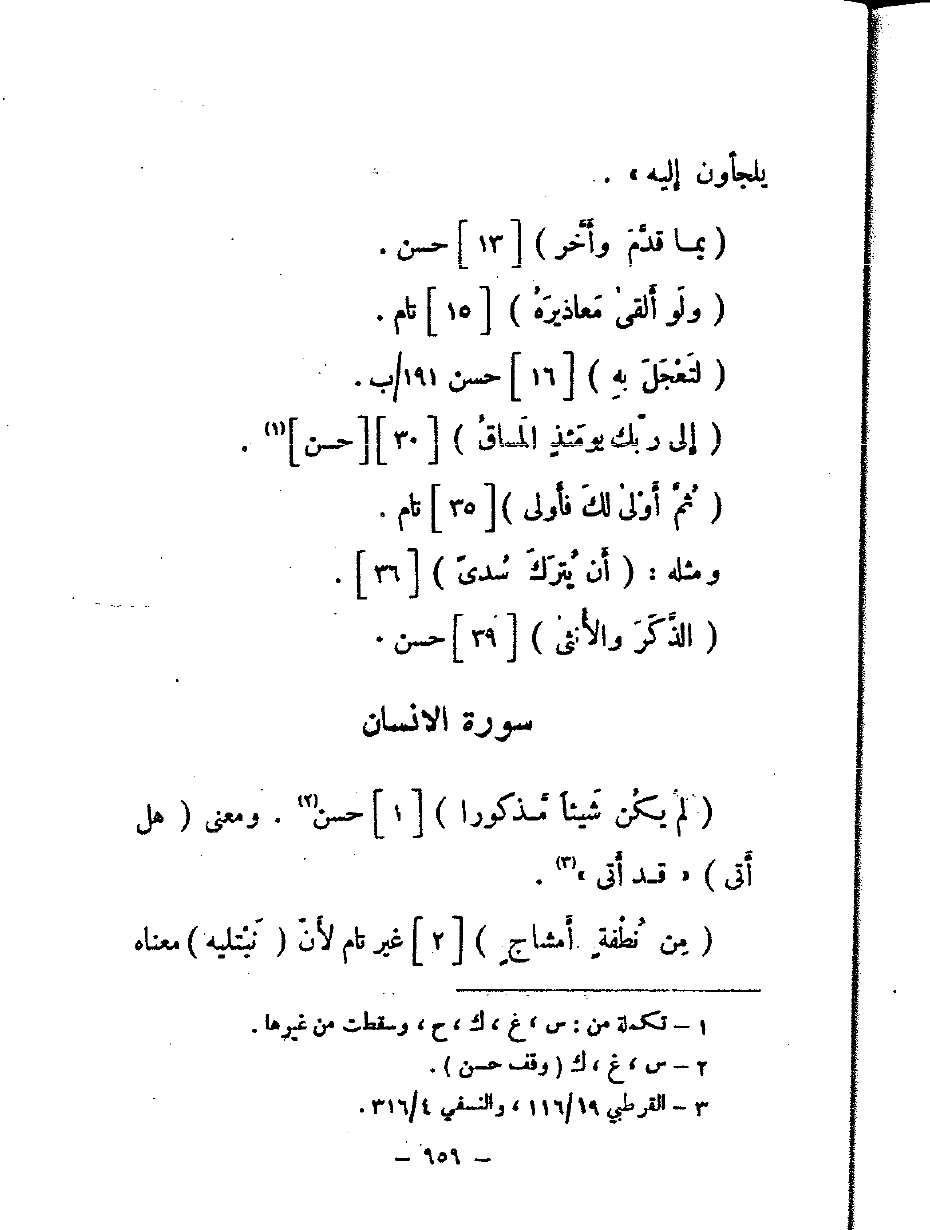 يلجأون إليه » .
( بمـا قدَّمَ وأَخَّر ) [ ١٣ ] حسن .
( ولَو أَلقىٰ مَعاذيرَهُ ) [ ١٥ ] تام .
( لتَعْجَلَ بهِ ) [ ١٦ ] حسن ١٩١/ب .
( إلى ربّك يومَئذٍ المَساقُ ) [ ٣٠ ] [ حسن ](١) .
( ثُمَّ أَوْلىٰ لكَ فأَولى ) [ ٣٥ ] تام .
ومثله : ( أَن يُتركَ سُدىً ) [ ٣٦ ] .
( الذَّكَرَ والأُنثىٰ ) [ ٣٩ ] حسن .
سورة الانسان
( لَمْ يكُن شَيئاً مَّـذكورا ) [ ١ ] حسن(٢) . ومعنى ( هل
أَتى ) « قـد أَتى »(٣) .
( مِن نُطْفةٍ أَمشاجٍ ) [ ٢ ] غير تام لأَنّ ( نَبْتليه ) معناه
١ – تكملة من : س ، غ ، ك ، ح ، وسقطت من غيرها .
٢ – س ، غ ، ك ( وقف حسن ) .
٣ – القرطبي ١١٦/١٩ ، والنسفي ٣١٦/٤ .
– ٩٥٩ –